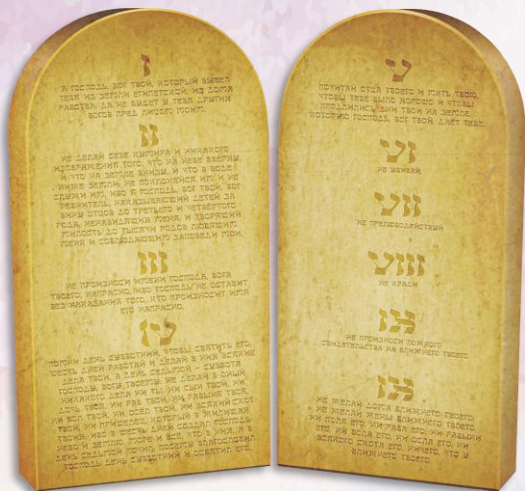 I
Я ГОСПОДЬ, БОГ ТВОЙ, КОТОРЫЙ ВЫВЕЛ
ТЕБЯ ИЗ ЗЕМЛИ ЕГИПЕТСКОЙ, ИЗ ДОМА
РАБСТВА; ДА НЕ БУДЕТ У ТЕБЯ ДРУГИХ
БОГОВ ПРЕД ЛИЦОМ МОИМ.
II
НЕ ДЕЛАЙ СЕБЕ КУМИРА И НИКАКОГО
ИЗОБРАЖЕНИЯ ТОГО, ЧТО НА НЕБЕ ВВЕРХУ,
И ЧТО НА ЗЕМЛЕ ВНИЗУ, И ЧТО В ВОДЕ
НИЖЕ ЗЕМЛИ; НЕ ПОКЛОНЯЙСЯ ИМ И НЕ
СЛУЖИ ИМ, ИБО Я ГОСПОДЬ, БОГ ТВОЙ, БОГ
РЕВНИТЕЛЬ, НАКАЗЫВАЮЩИЙ ДЕТЕЙ ЗА
ВИНУ ОТЦОВ ДО ТРЕТЬЕГО И ЧЕТВЁРТОГО
РОДА, НЕНАВИДЯЩИХ МЕНЯ, И ТВОРЯЩИЙ
МИЛОСТЬ ДО ТЫСЯЧИ РОДОВ ЛЮБЯЩИМ
МЕНЯ И СОБЛЮДАЮЩИМ ЗАПОВЕДИ МОИ.
III
НЕ ПРОИЗНОСИ ИМЕНИ ГОСПОДА, БОГА
ТВОЕГО, НАПРАСНО, ИБО ГОСПОДЬ НЕ ОСТАВИТ
БЕЗ НАКАЗАНИЯ ТОГО, КТО ПРОИЗНОСИТ ИМЯ
ЕГО НАПРАСНО.
IV
ПОМНИ ДЕНЬ СУББОТНИЙ, ЧТОБЫ СВЯТИТЬ ЕГО;
ШЕСТЬ ДНЕЙ РАБОТАЙ И ДЕЛАЙ В НИХ ВСЯКИЕ
ДЕЛА ТВОИ, А ДЕНЬ СЕДЬМОЙ – СУББОТА
ГОСПОДУ, БОГУ ТВОЕМУ: НЕ ДЕЛАЙ В ОНЫЙ
НИКАКОГО ДЕЛА НИ ТЫ, НИ СЫН ТВОЙ, НИ
ДОЧЬ ТВОЯ, НИ РАБ ТВОЙ, НИ РАБЫНЯ ТВОЯ,
НИ ВОЛ ТВОЙ, НИ ОСЕЛ ТВОЙ, НИ ВСЯКИЙ СКОТ
ТВОЙ, НИ ПРИШЕЛЕЦ, КОТОРЫЙ В ЖИЛИЩАХ
ТВОИХ; ИБО В ШЕСТЬ ДНЕЙ СОЗДАЛ ГОСПОДЬ
НЕБО И ЗЕМЛЮ, МОРЕ И ВСЕ, ЧТО В НИХ, А В
ДЕНЬ СЕДЬМОЙ ПОЧИЛ; ПОСЕМУ БЛАГОСЛОВИЛ
ГОСПОДЬ ДЕНЬ СУББОТНИЙ И ОСВЯТИЛ ЕГО.
V
ПОЧИТАЙ ОТЦА ТВОЕГО И МАТЬ ТВОЮ,
ЧТОБЫ ТЕБЕ БЫЛО ХОРОШО И ЧТОБЫ
ПРОДЛИЛИСЬ ДНИ ТВОИ НА ЗЕМЛЕ,
КОТОРУЮ ГОСПОДЬ, БОГ ТВОЙ, ДАЁТ ТЕБЕ.
VI
НЕ УБИВАЙ.
VII
НЕ ПРЕЛЮБОДЕЙСТВУЙ
VIII
НЕ КРАДИ
IX
НЕ ПРОИЗНОСИ ЛОЖНОГО
СВИДЕТЕЛЬСТВА НА БЛИЖНЕГО ТВОЕГО
IX
НЕ ЖЕЛАЙ ДОМА БЛИЖНЕГО ТВОЕГО;
НЕ ЖЕЛАЙ ЖЕНЫ БЛИЖНЕГО ТВОЕГО,
НИ ПОЛЯ ЕГО, НИ РАБА ЕГО, НИ РАБЫНИ
ЕГО, НИ ВОЛА ЕГО, НИ ОСЛА ЕГО, НИ
ВСЯКОГО СКОТА ЕГО, НИЧЕГО, ЧТО У
БЛИЖНЕГО ТВОЕГО